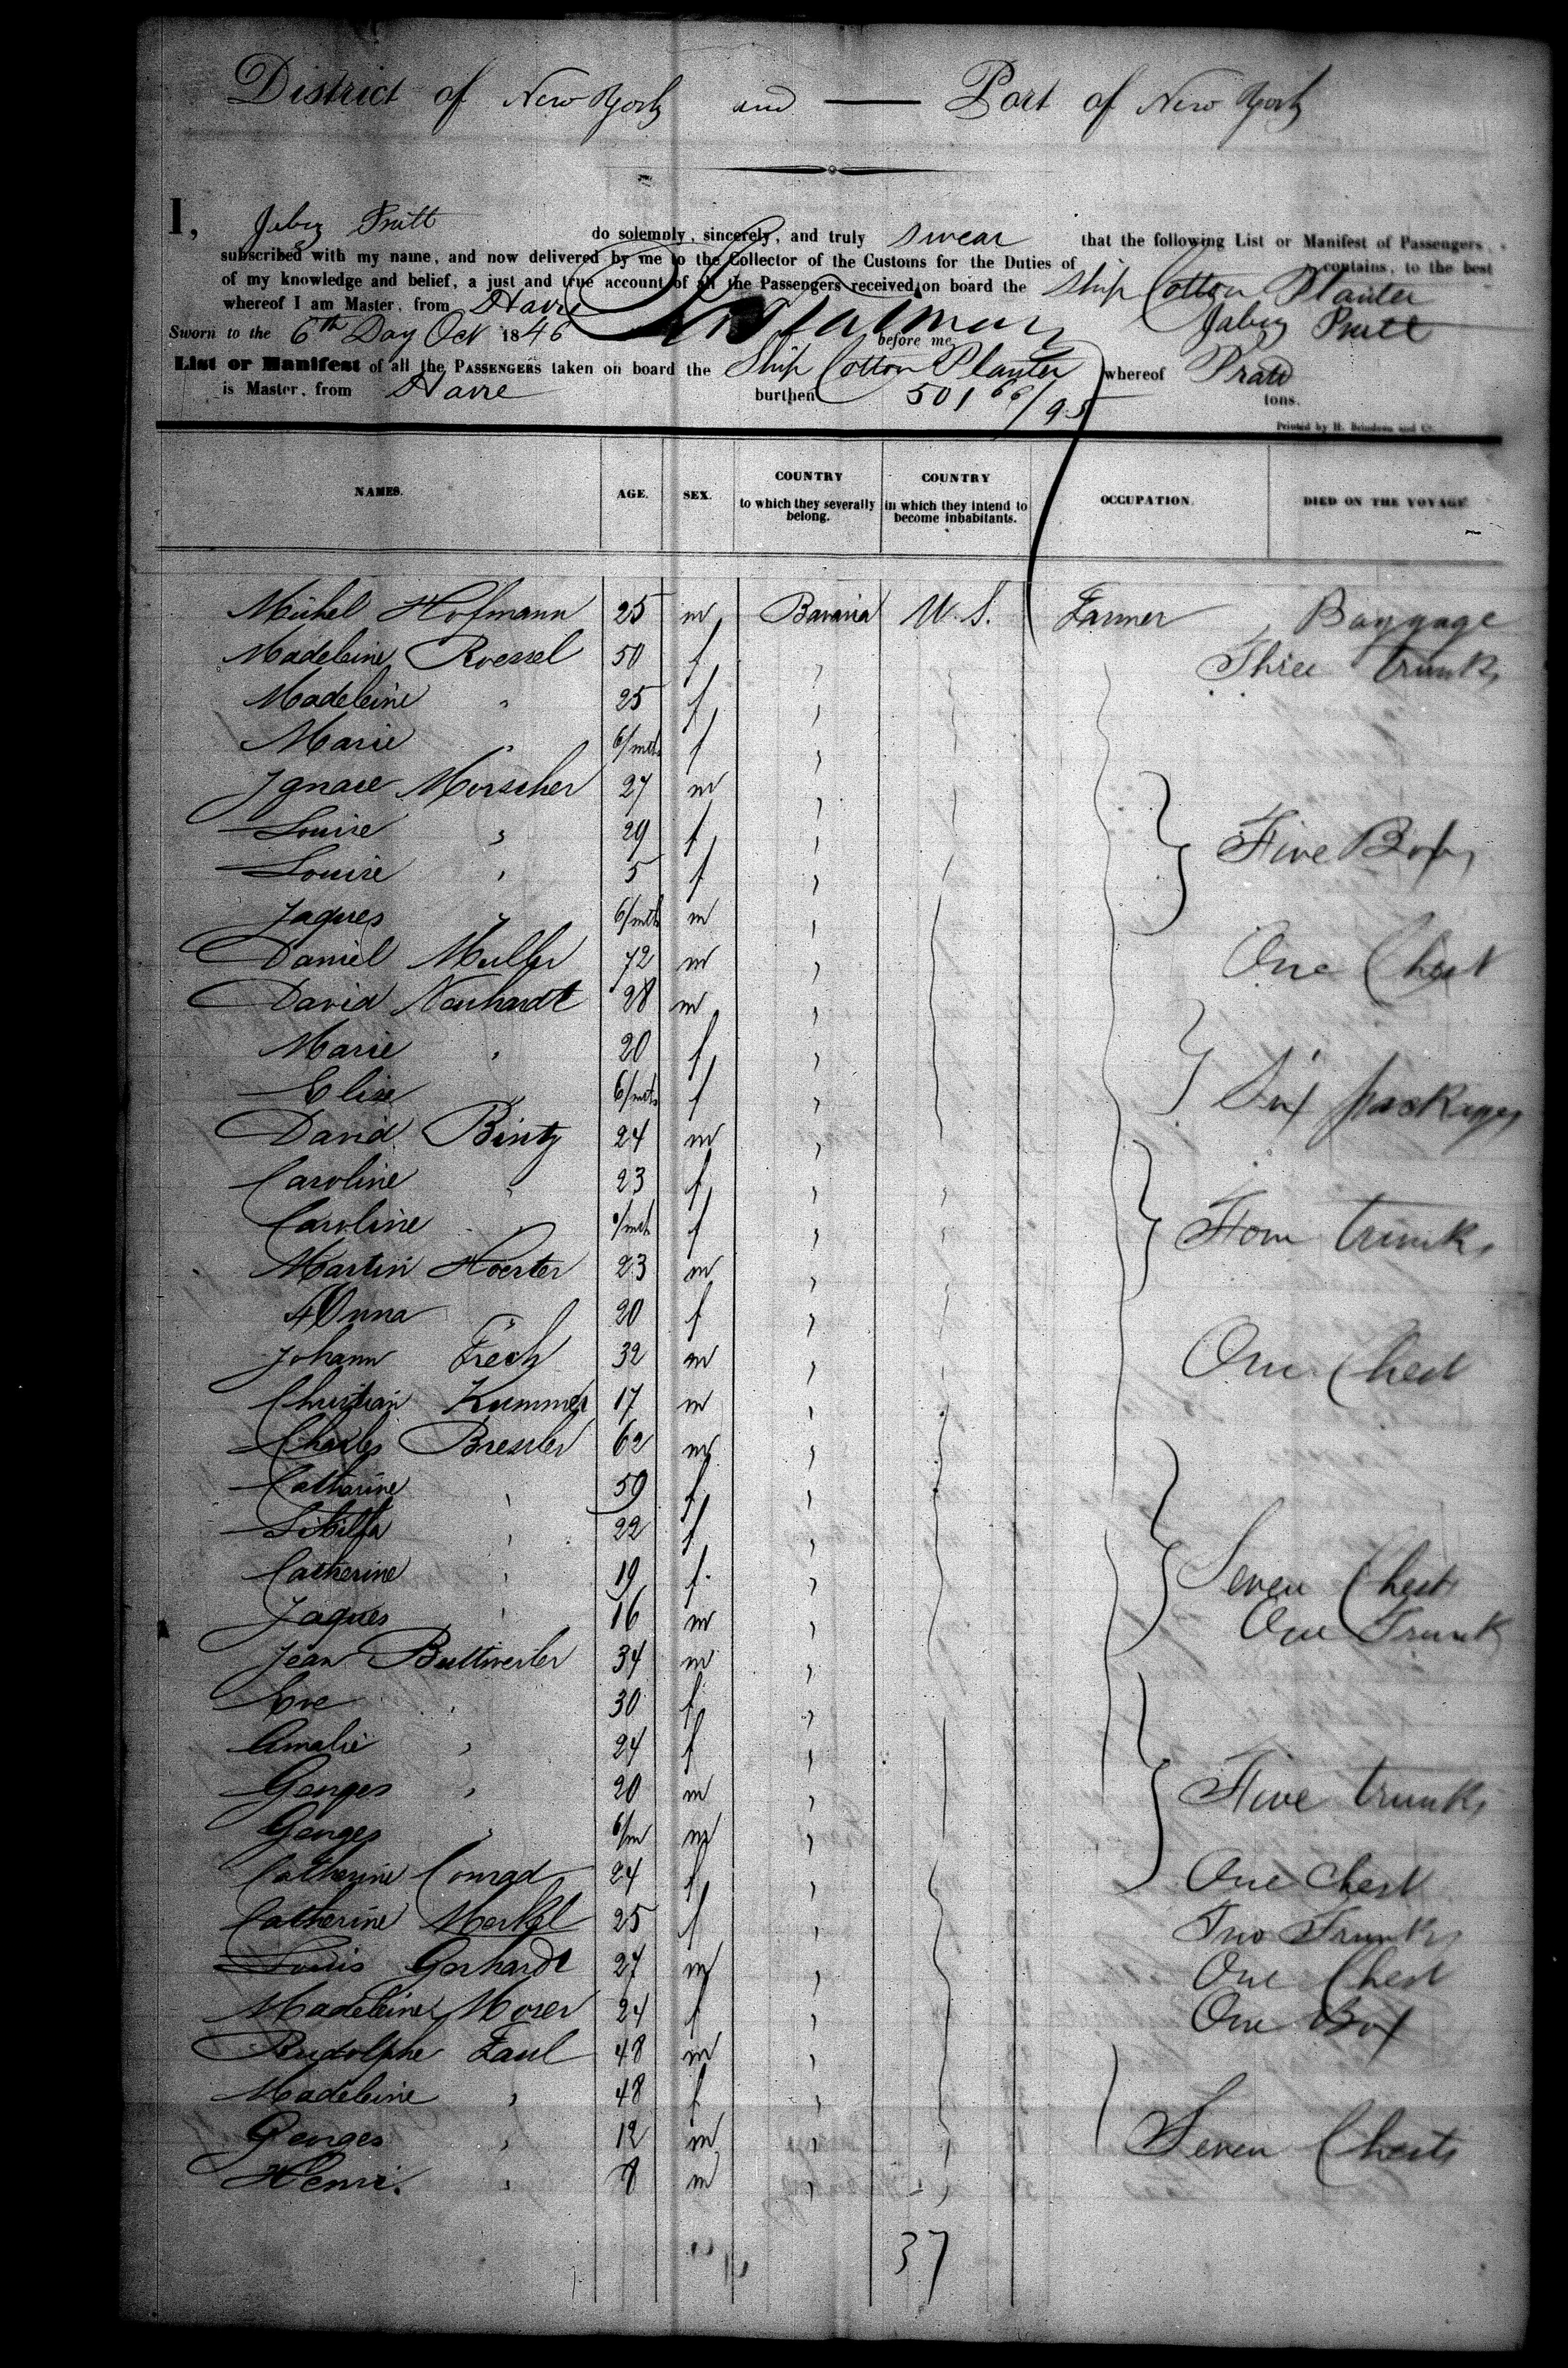 District of New York and — Port of New York
I, Jabez Pratt do solemnly, sincerely, and truly swear that the following List or Manifest of Passengers
subscribed with my name, and now delivered by me to the Collector of the Customs for the Duties of contains, to the best
of my knowledge and belief, a just and true account of all the Passengers received on board the Ship Cotton Planter
whereof I am Master, from Havre Jabez Pratt
Sworn to the 6th Day Oct 1846 before me
List or Manifest of all the PASSENGERS taken on board the Ship Cotton Planter whereof Pratt
is Master, from Havre burthen 501 66/95 tons.
Printed by H. Brindeau and Co.
NAMES. AGE. SEX. COUNTRY to which they severally belong. COUNTRY in which they intend to become inhabitants. OCCUPATION. DIED ON THE VOYAGE
Michel Hofmann 25 m Bavaria U.S. Farmer Baggage
Madeleine Roessel 50 f , Three trunks
Madeleine " 25 f ,
Marie " 6/mths f ,
Ignace Morscher 27 m ,
Louise " 29 f , Five Box
Louise " 5 f ,
Jaques " 6/mths m ,
Daniel Muller 72 m , One Chest
David Neuhardt 28 m ,
Marie " 20 f ,
Elise 6/mts f , Six packages
David Bintz 24 m ,
Caroline " 23 f ,
Caroline " /mth f , Four trunks
Martin Hoerter 23 m ,
Anna " 20 f ,
Johann Frech 32 m , One Chest
Christian Kummer 17 m ,
Charles Bressler 62 m ,
Catharine " 59 f ,
22 f ,
Catherine " 19 f. , Seven Chests
Jaques " 16 m , One Trunk
Jean Buttweiler 34 m ,
Eve " 30 f ,
Amalie " 24 f ,
Georges " 20 m , Five trunks
Georges " 6/m m ,
Catherine Conrad 24 f , One Chest
Catherine Markel 25 f , Two Trunks
Louis Gerhardt 27 m , One Chest
Madeleine Moser 24 f , One Box
Rudolphe Faul 48 m ,
Madeleine " 48 f ,
Georges " 12 m , Seven Chests
Henri. " 8 m ,
37